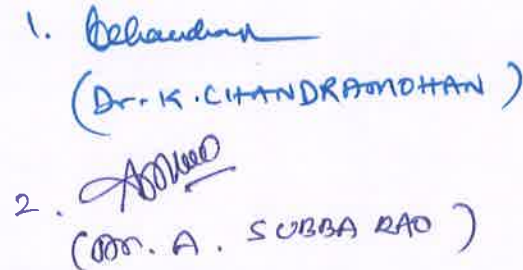 1.
(Dr. K. CHANDRAMOHAN)
2.
(Dr. A. SUBBA RAO)